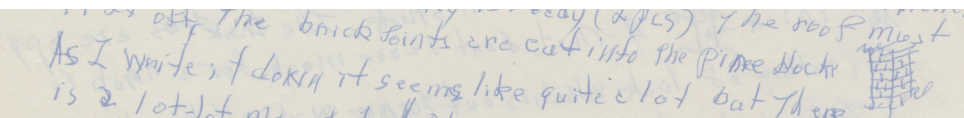 The brick joints are cut into the pinee blocks
ready (2 pcs) The roof must
As I write it down it seems like quite a lot but There
is a lot-lot